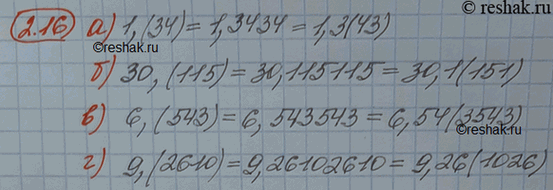 2.16 а) 1,(34)=1,3434=1,3(43)
©reshak.ru
б) 30,(115)=30,115115=30,1(151)
в) 6,(543)=6,543543=6,54(3543)
©reshak.ru
г) 9,(2610)=9,26102610=9,26(1026)